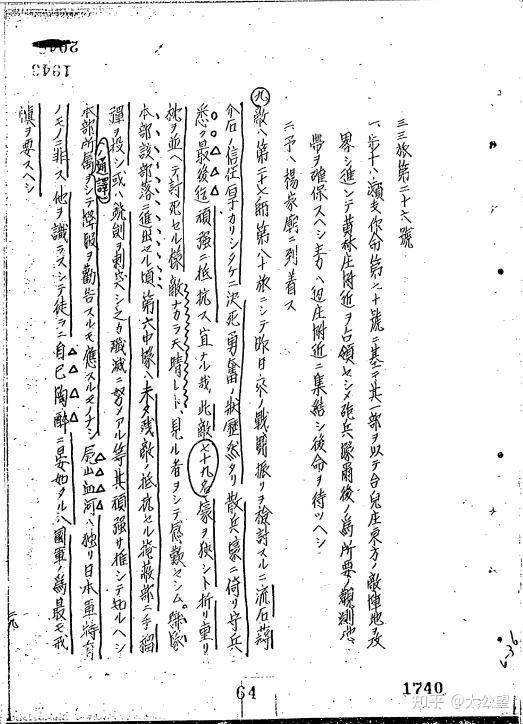 三三旅第二十六號
一、歩十八ハ瀬支作命第七十號ニ基キ其一部ヲ以テ台兒庄東方ノ敵陣地攻
界シ進ンテ黄林庄附近ヲ占領セシメ砲兵隊爾後ノ為所要ノ觀測地
帶ヲ確保スヘシ主力ハ 庄附近ニ集結シ後命ヲ待ツヘシ
二、予ハ楊家廟ニ到着ス
九 敵ハ第二十七師第八十旅ニシテ昨日來ノ戰鬪振リヲ檢討スルニ流石蔣
介石ノ信任厚カリシタケニ決死勇奮ノ狀歴然タリ散兵壕ニ倚リ守兵
悉ク最後迄頑強ニ抵抗ス宜ナル哉、此敵七十九名壕ヲ狹シト折リ重リ
枕ヲ並ヘテ討死セル様敵ナカラ天晴レト、見ル者ヲシテ感歎セシム。
本部該部落ニ進出セル頃第六中隊ハ未タ殘敵ノ抵抗セル掩蔽部ニ手榴
彈ヲ投シ或ハ銃劍ヲ刺突シ之カ殲滅ニ努メアル等其頑強サ推シテ知ルヘシ
本部所屬通譯ヲシテ降服ヲ勸告スルモ應スルモノナシ 屍山血河ハ獨リ日本軍特有
ノモノニ非ス他ヲ識ラスシテ徒ラニ自己陶醉ニ タルハ國軍ノ爲最モ戒
愼ヲ要スヘシ
64
1740
1943
知乎 @太公望